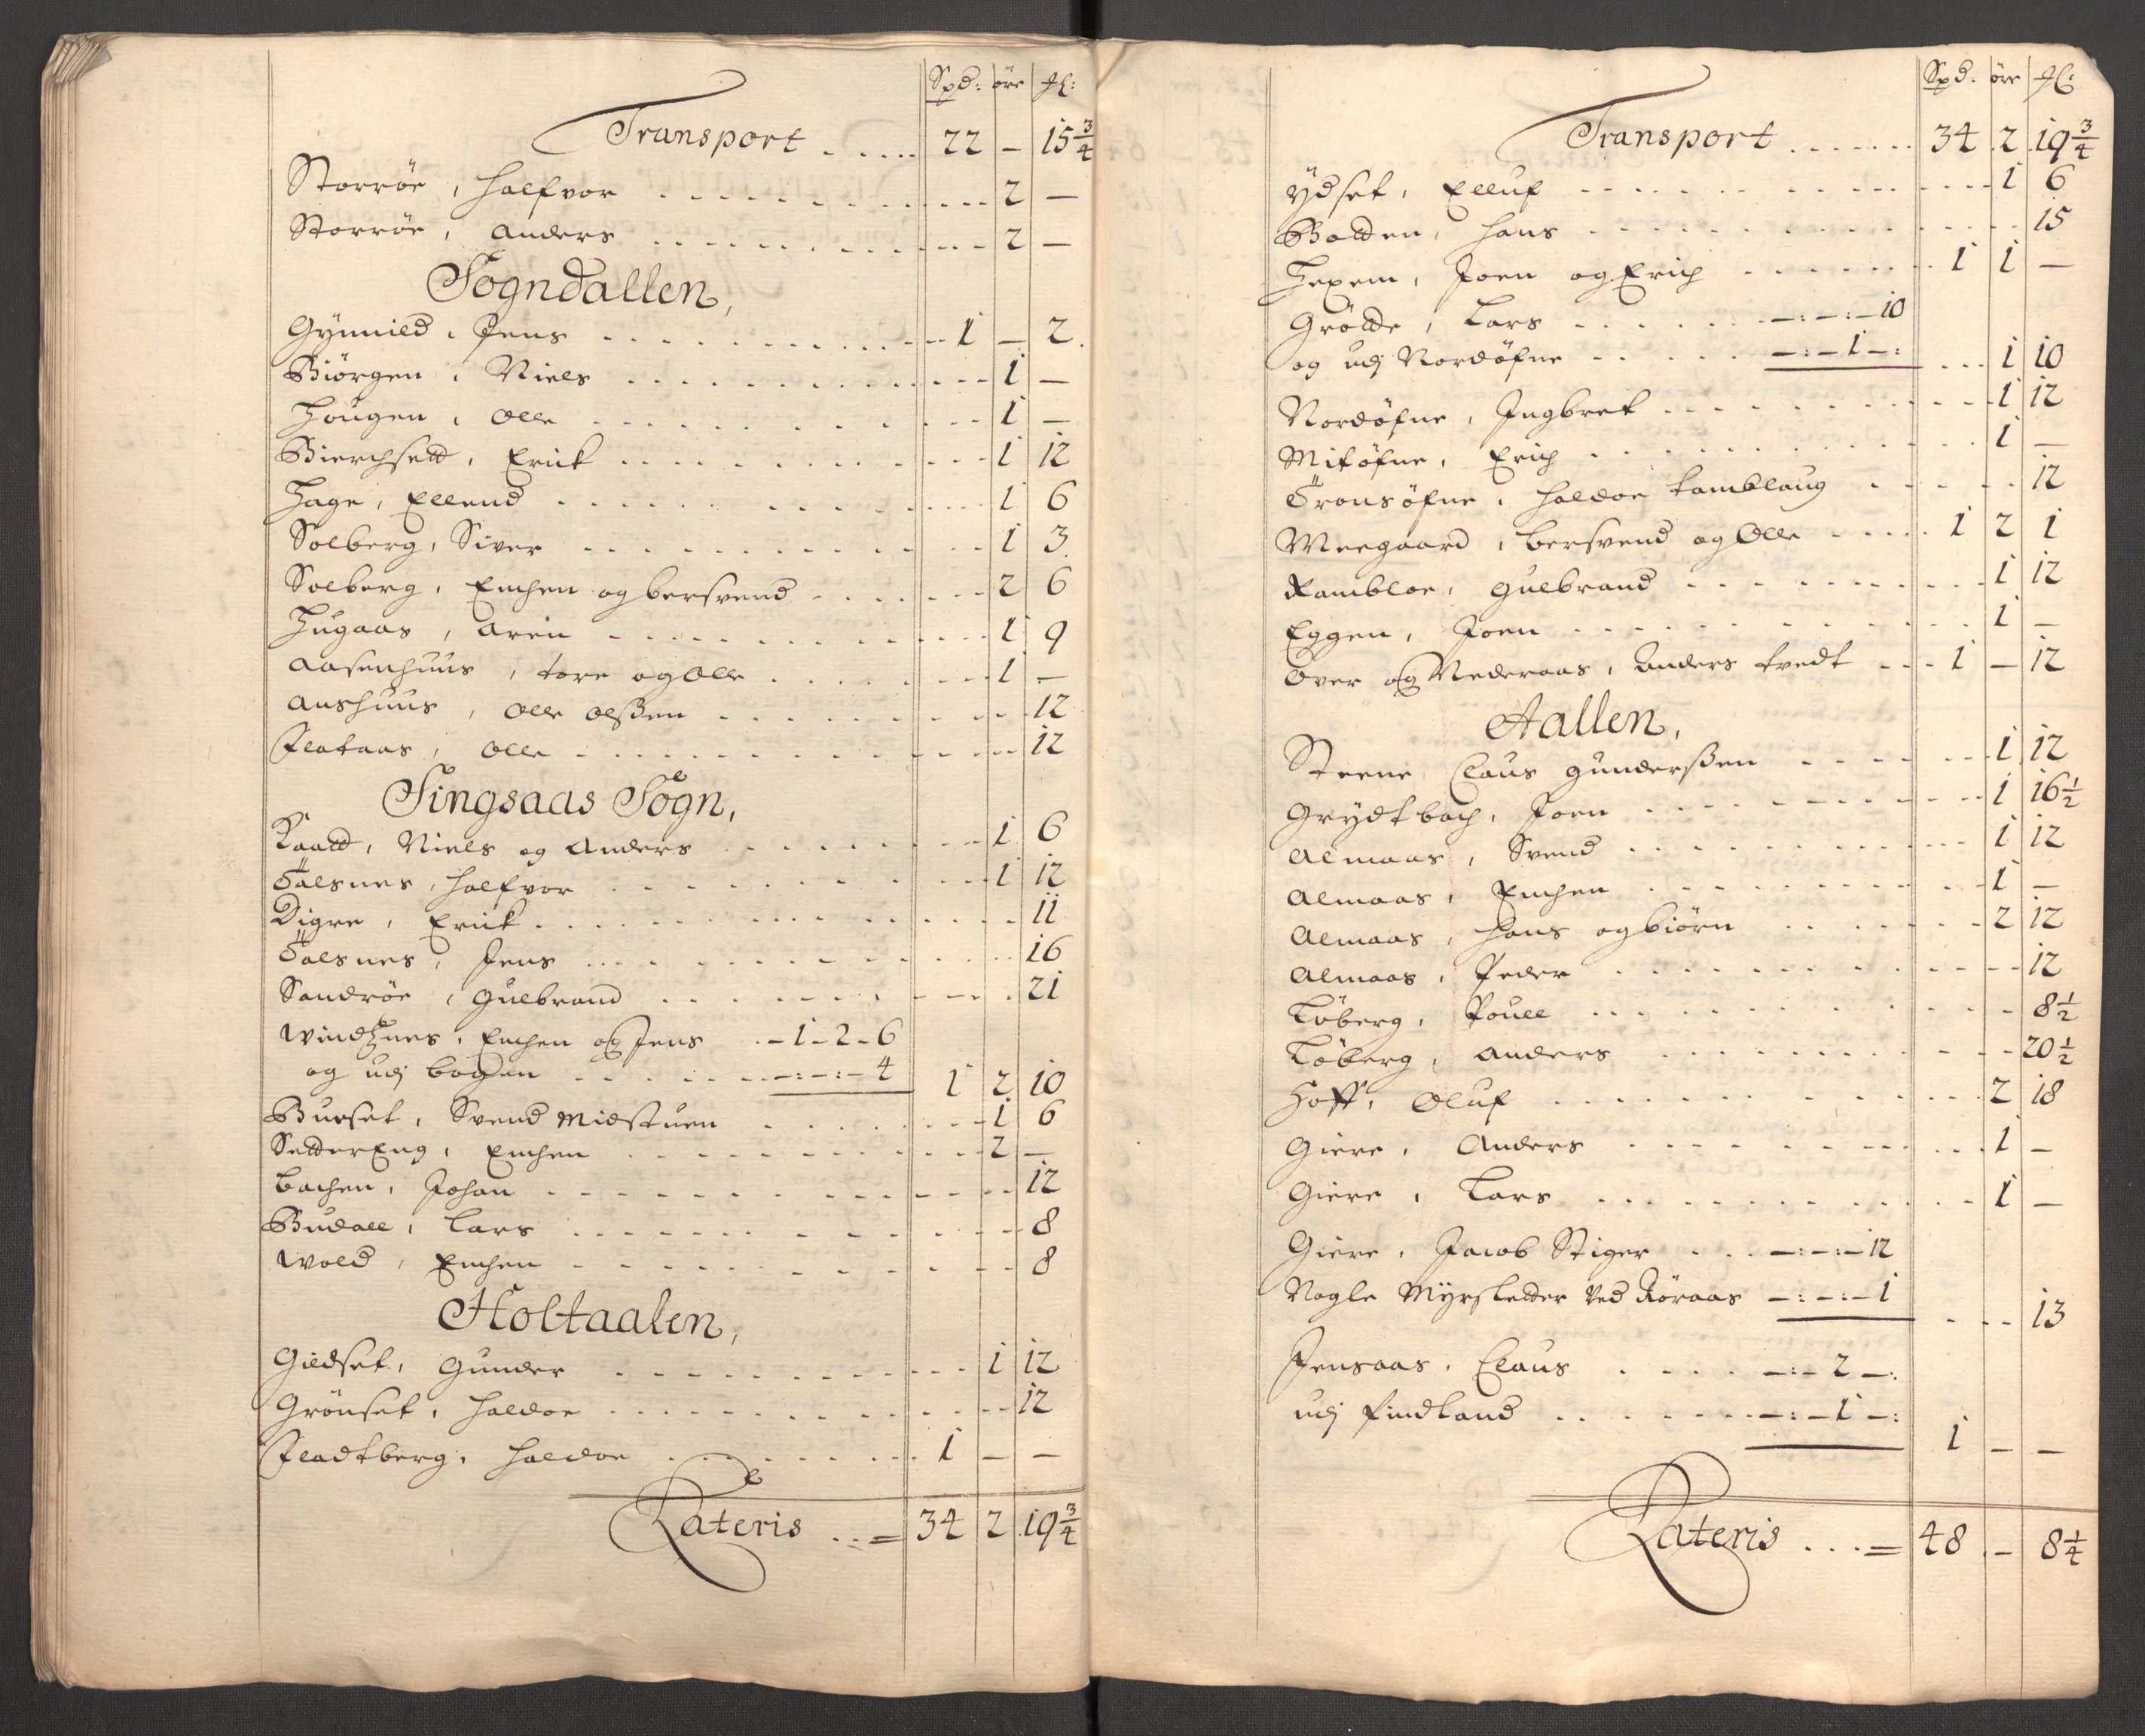 Spd: öre ML:
Transport ..... 22 – 15 3/4
Storröe, Halfvor ..... 2 –
Storröe, Anders ..... 2 –
Sogndallen,
Gÿnnild, Jens ..... 1 – 2.
Biörgen, Niels ..... 1 –
Hougen, Olle ..... 1 –
Bierchsett, Erick ..... 1 12
Hage, Ellend ..... 1 6
Solberg, Siver ..... 1 3.
Solberg, Enchen og bersvend ..... 2 6
Hugaas, Aren ..... 1 9
Aasenhuus, tore og Olle ..... 1 –
Aushuus, Olle Olßen ..... 12
Flataas, Olle ..... 12
Singsaas Sogn,
Kaatt, Niels og Anders ..... 1 6
Talsnes, Halfvor ..... 1 12
Digre, Erick ..... 11
Talsnes, Jens ..... 16
Sandröe, Gulbrand ..... 21
Windznes, Enchen og Jens ..–1–2–6
og udj bogen .....–:–:–4 1 2 10
Burset, Svend Midstuen ..... 1 6
SetterEng, Enchen ..... 2 –
Bachen, Johan ..... 12
Budall, Lars ..... 8
Wold, Enchen ..... 8
Holtaalen,
Gildset, Gunder ..... 1 12
Grönset, Haldor ..... 12
Fladtberg, Haldor ..... 1 – –
Lateris ..= 34 2 19 3/4
Spd: öre ML:
Transport ..... 34 2 19 3/4
Ÿdset, Elluf ..... 1 6
Botten, Hans ..... 15
Hexem, Joen og Erich ..... 1 1 –
Grötte, Lars .....–:–:–10
og udj Nordöfne .....–:–1–: ... 1 10
Nordöfne, Ingbret ..... 1 12
Mitöfne, Erich ..... 1 –
Tronsöfne, Haldor tamblaug ..... 12
Meegaard, bersvend og Olle ..... 1 2 1
Rambloe, Gulbrand ..... 1 12
Eggen, Joen ..... 1 –
Over og Nederaas, Anders tvedt ... 1 – 12
Aallen,
Steene, Claus Gunderßen ..... 1 12
Grÿdtbach, Joen ..... 1 16 1/2
Almaas, Svend ..... 1 12
Almaas, Enchen ..... 1 –
Almaas, Hans og biörn ..... 2 12
Almaas, Peder ..... 12
Löberg, Pouell ..... 8 1/2
Löberg, Anders ..... 20 1/2
Hoff, Oluf ..... 2 18
Giere, Anders ..... 1 –
Giere, Lars ..... 1 –
Giere, Jacob Stiger ...–:–:–12
Nogle Mÿrsletter Ved Röraas –:–:–1 ... 13
Jensaas, Claus .....–:–2–:
udj findland .....–:–1–: 1 – –
Lateris ...= 48 – 8 1/4